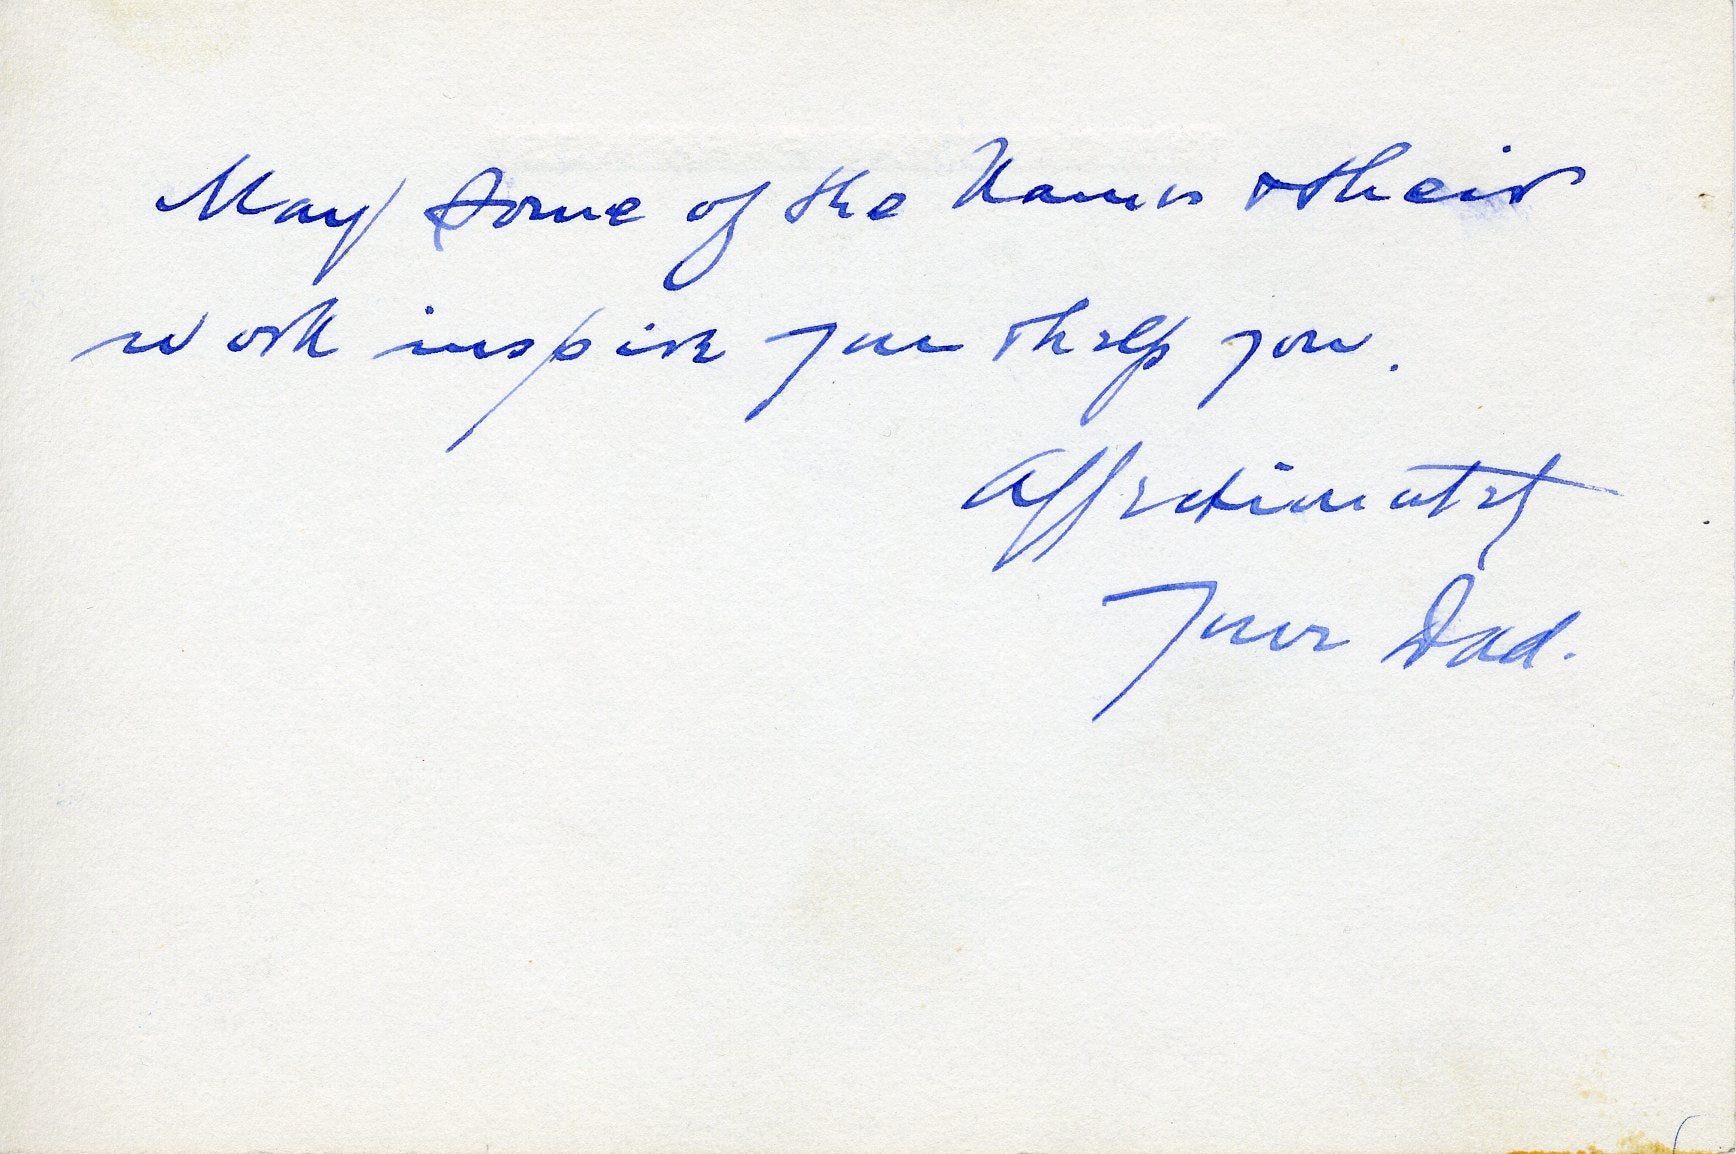 May some of the Names & their
work inspire you & help you.
Affectionately
Your Dad.